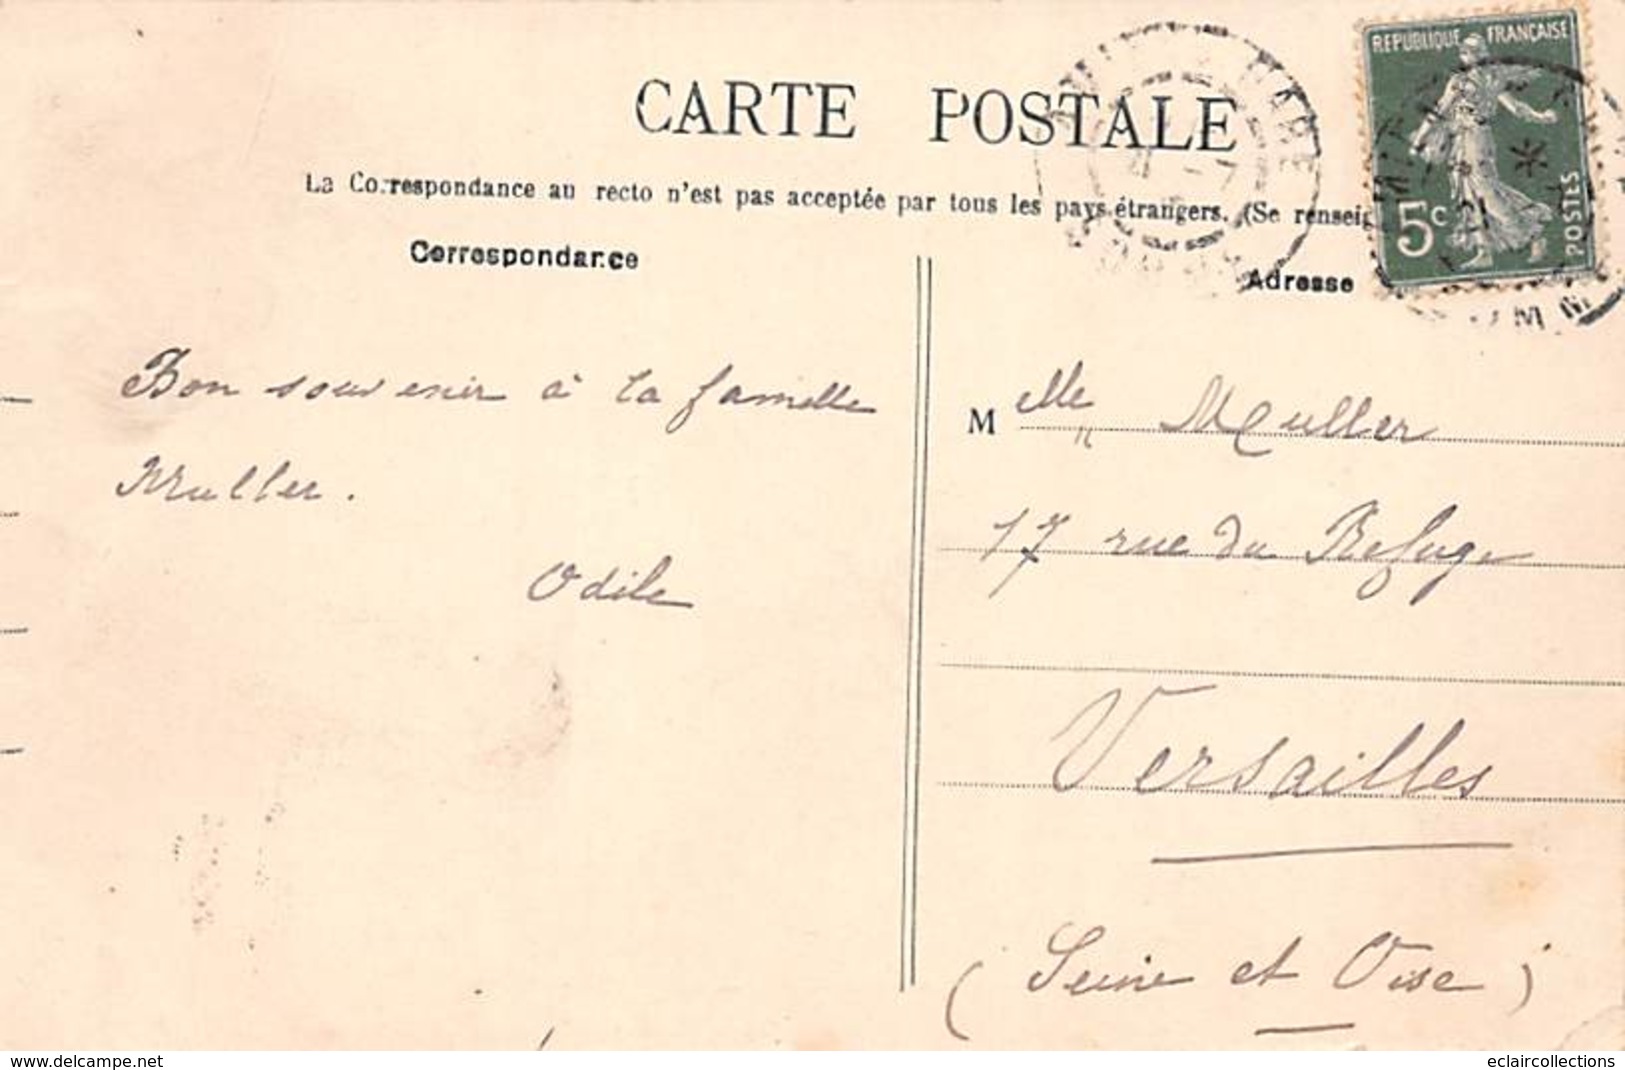 CARTE POSTALE
La Correspondance au recto n'est pas acceptée par tous les pays étrangers. (Se renseig
Correspondance
Adresse
REPUBLIQUE FRANÇAISE
5c
POSTES
Bon souvenir à la famille
Muller.
Odile
M elle Muller
17 rue du Refuge
Versailles
(Seine et Oise)
www.delcampe.com
eclaircollections